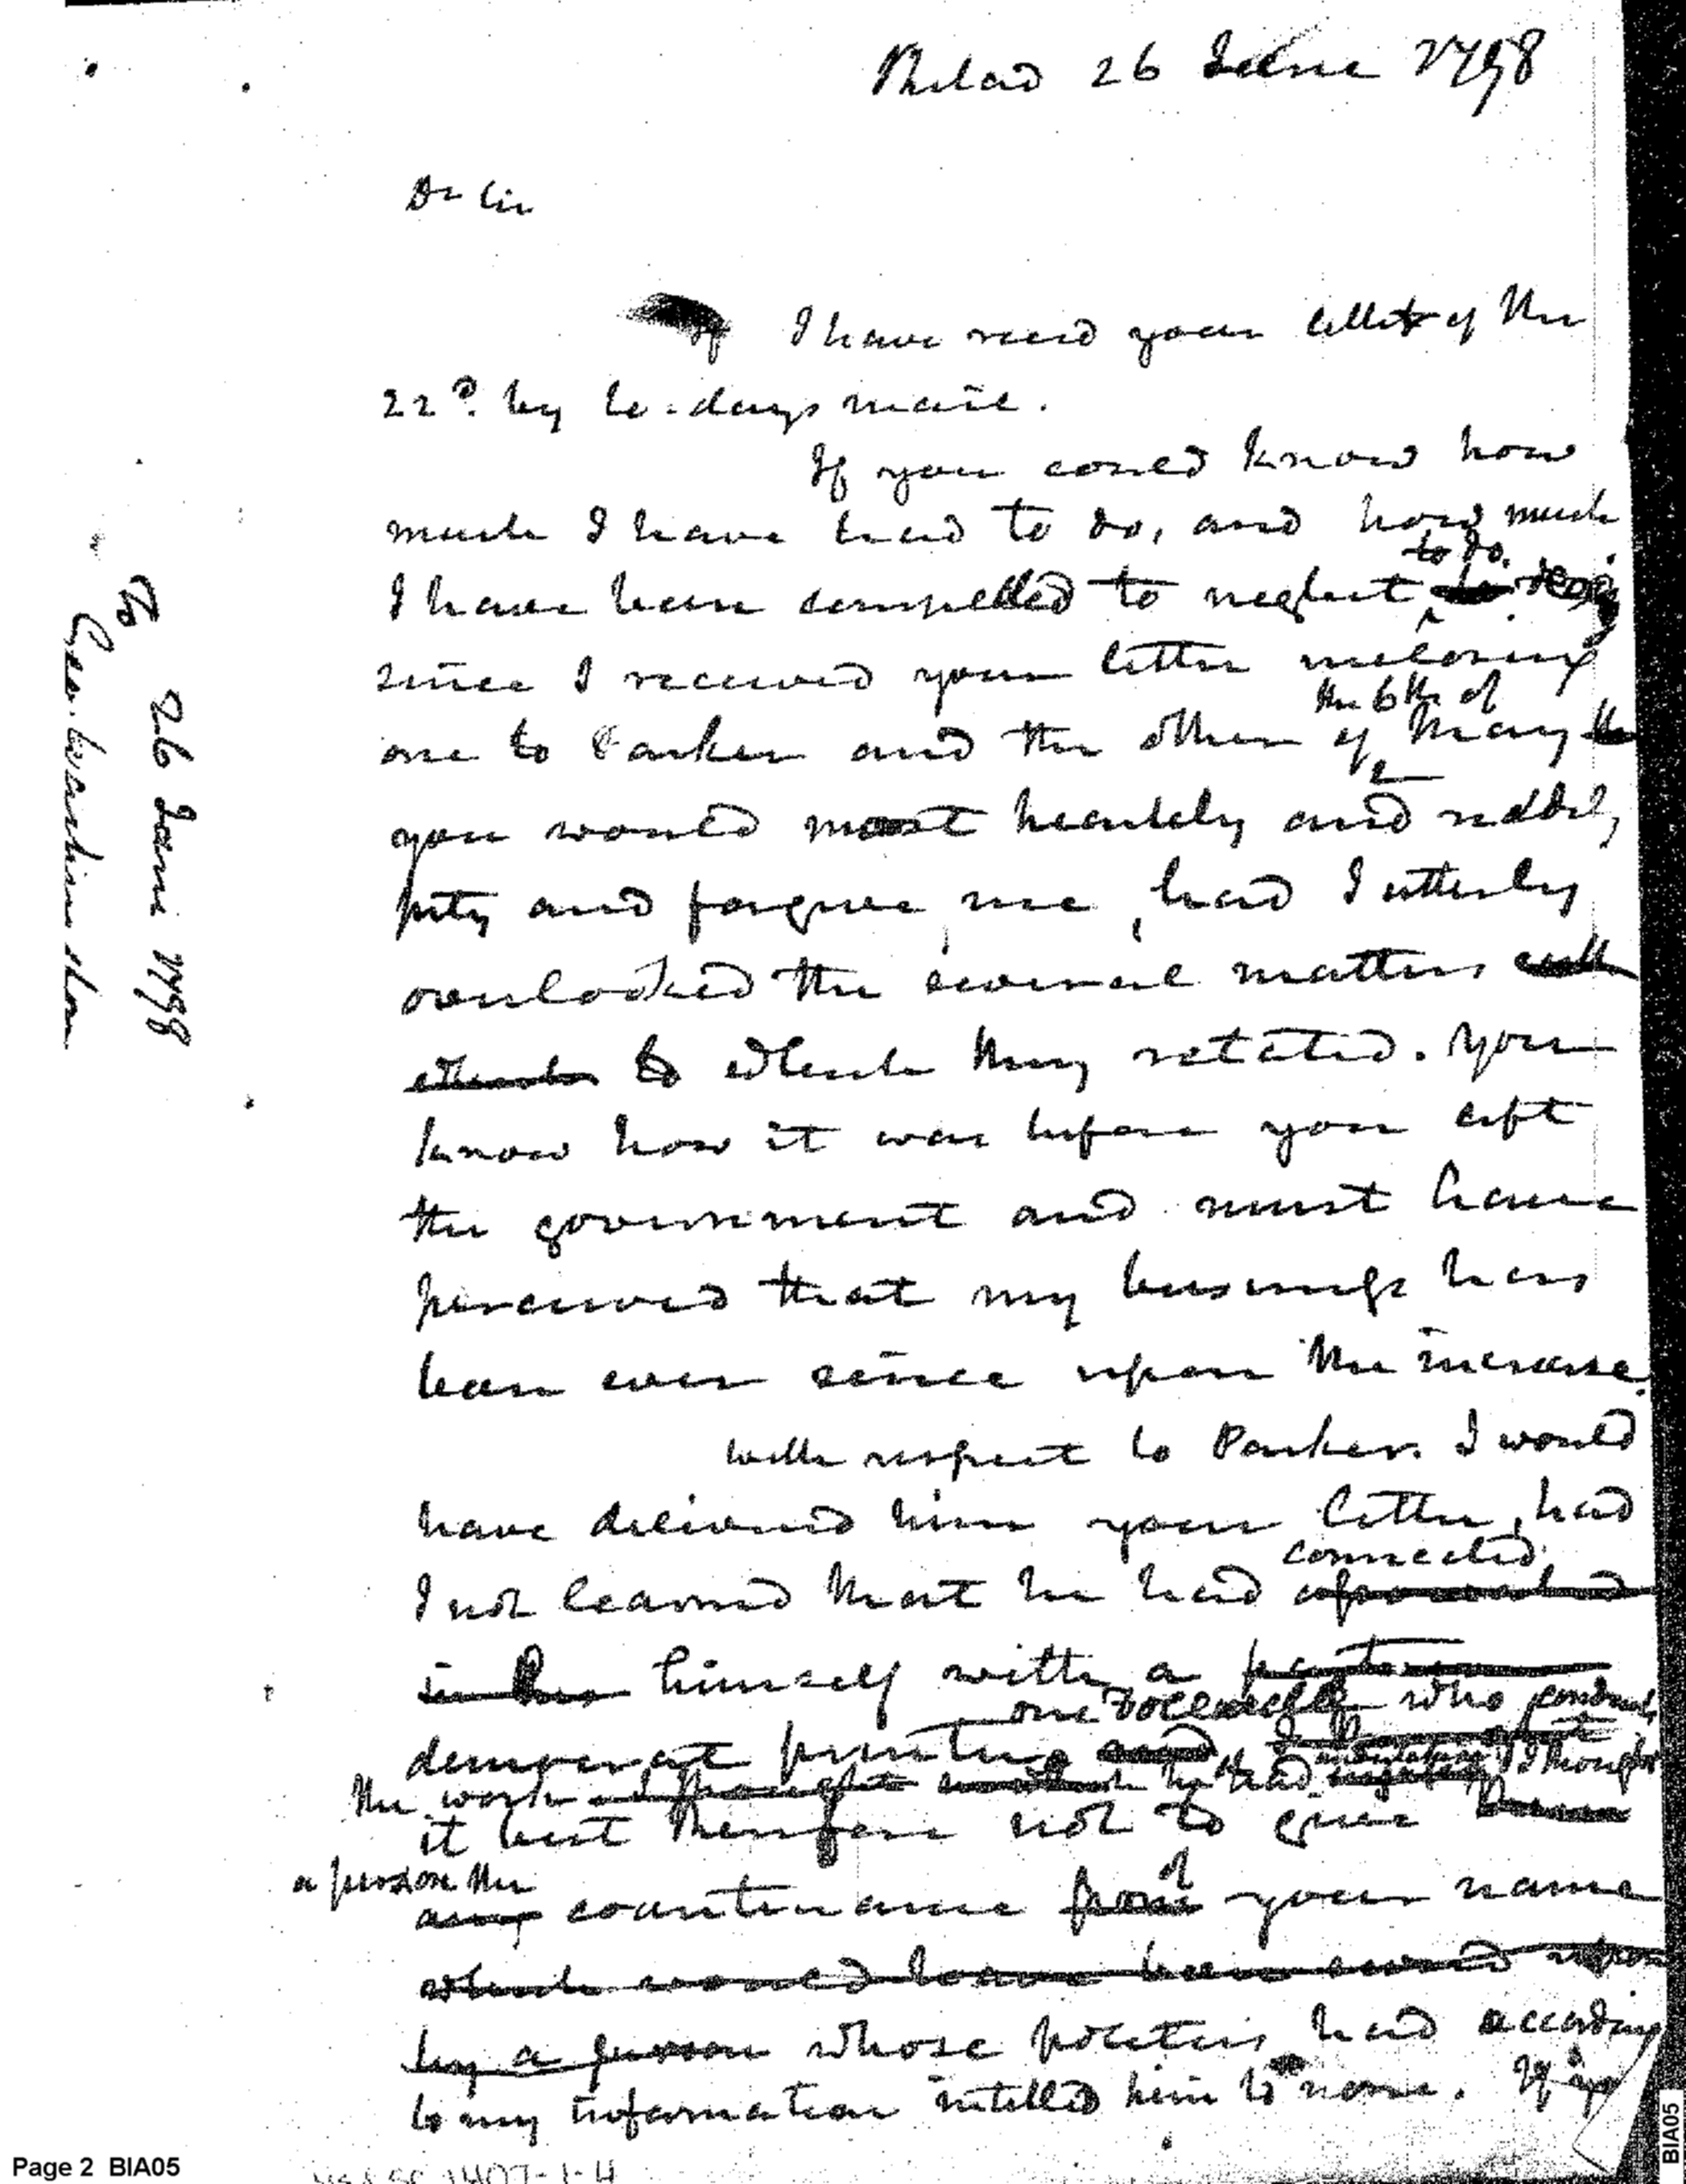 Philad 26 June 1798
Dr Sir
If I have recd your letter of the
22d. by to-days mail.
If you could know how
much I have had to do, and how much
to do.
I have been compelled to neglect
since I received your letter inclosing
the 6th of
one to Parker and the other of May
you would most heartily and readily
pity and forgive me, had I utterly
overlooked the several matters
to which they related. You
know how it was before you left
the government and must have
perceived that my business has
been ever since upon the increase.
With respect to Parker. I would
have delivered him your letter, had
connected
I not learned that he had
in his himself with a
one who conducts
democrat printer and
the work I thought he had I thought
it best therefore not to give
a person the
any countenance from of your name
which would have been upon
by a person whose politics had according
to my information intitled him to none. If
To
Geo. Washington
26 June 1798
Page 2 BIA05
BIA05